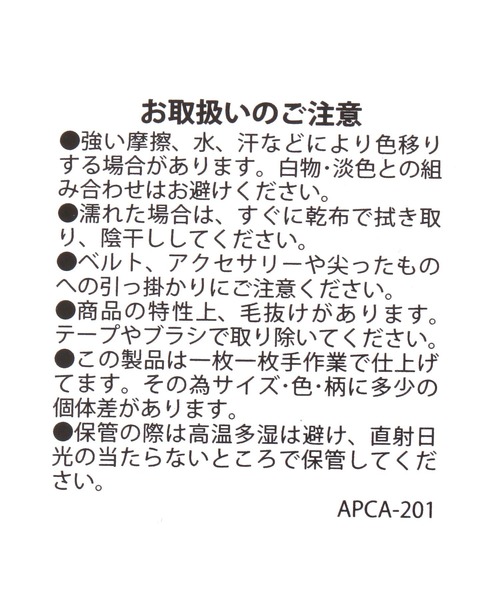 お取扱いのご注意
●強い摩擦、水、汗などにより色移り
する場合があります。白物・淡色との組
み合わせはお避けください。
●濡れた場合は、すぐに乾布で拭き取
り、陰干ししてください。
●ベルト、アクセサリーや尖ったもの
への引っ掛かりにご注意ください。
●商品の特性上、毛抜けがあります。
テープやブラシで取り除いてください。
●この製品は一枚一枚手作業で仕上げ
てます。その為サイズ・色・柄に多少の
個体差があります。
●保管の際は高温多湿は避け、直射日
光の当たらないところで保管してくだ
さい。
APCA-201